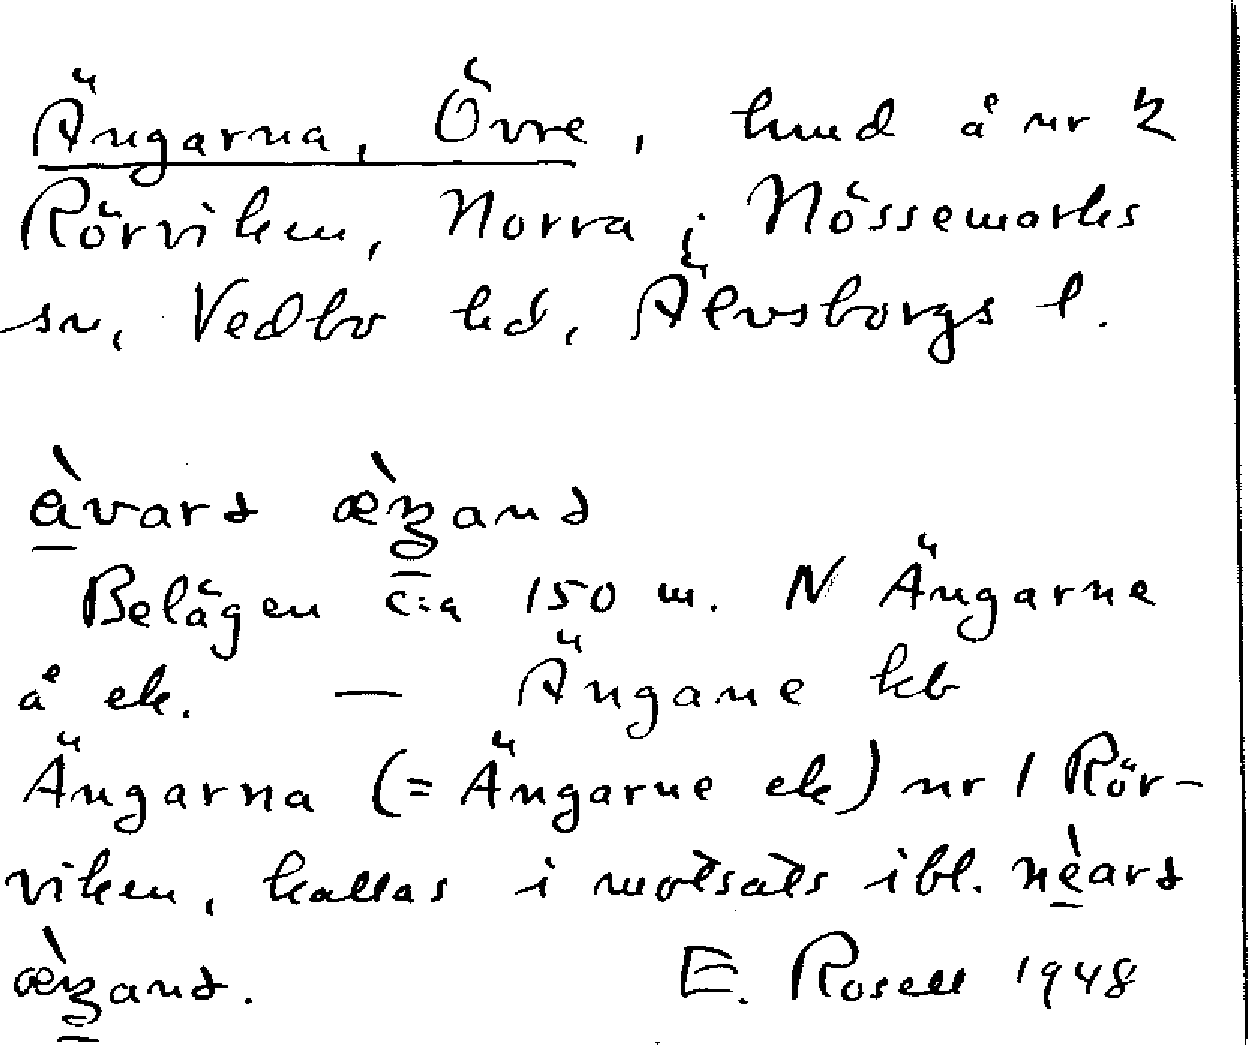 Ängarna, Övre, hmd å nr 2
Rörviken, Norra i Nössemarks
sn, Vedbo hd, Älvsborgs l.
àvarə æ̀ŋanə
Belägen c:a 150 m. N Ängarne
å ek. — Ängane kb
Ängarna (= Ängarne ek) nr 1 Rör-
viken, kallas i motsats ibl. nèarə
æ̀ŋanə. E. Rosell 1948